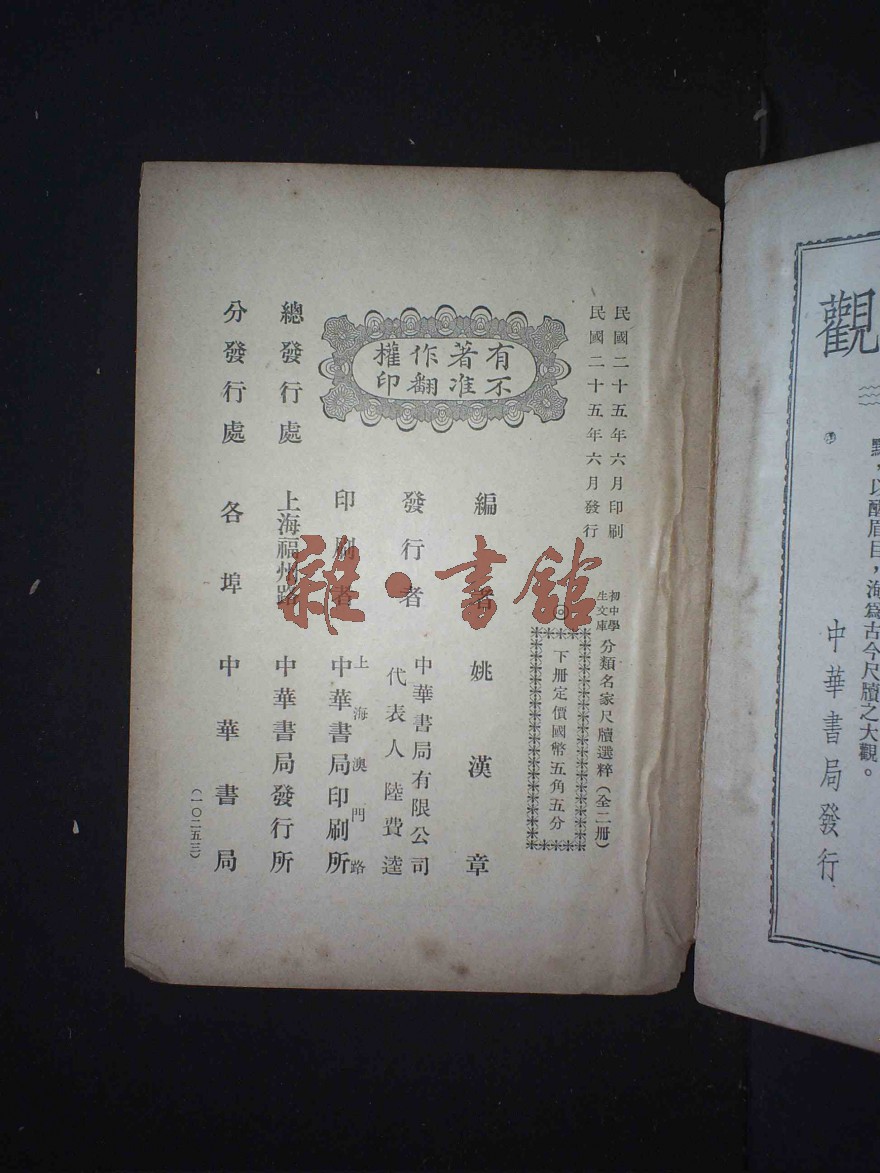 民國二十五年六月印刷
民國二十五年六月發行
初中學
生文庫
分類名家尺牘選粹（全二冊）
◎
下冊定價國幣五角五分
有不
著准
作翻
權印
編者 姚漢章
發行者 中華書局有限公司
代表人陸費逵
印刷者 上海澳門路
中華書局印刷所
總發行處 上海福州路 中華書局發行所
分發行處 各埠 中華書局
（一〇二五三）
雜·書館
觀
點，以醒眉目，海爲古今尺牘之大觀。
中華書局發行